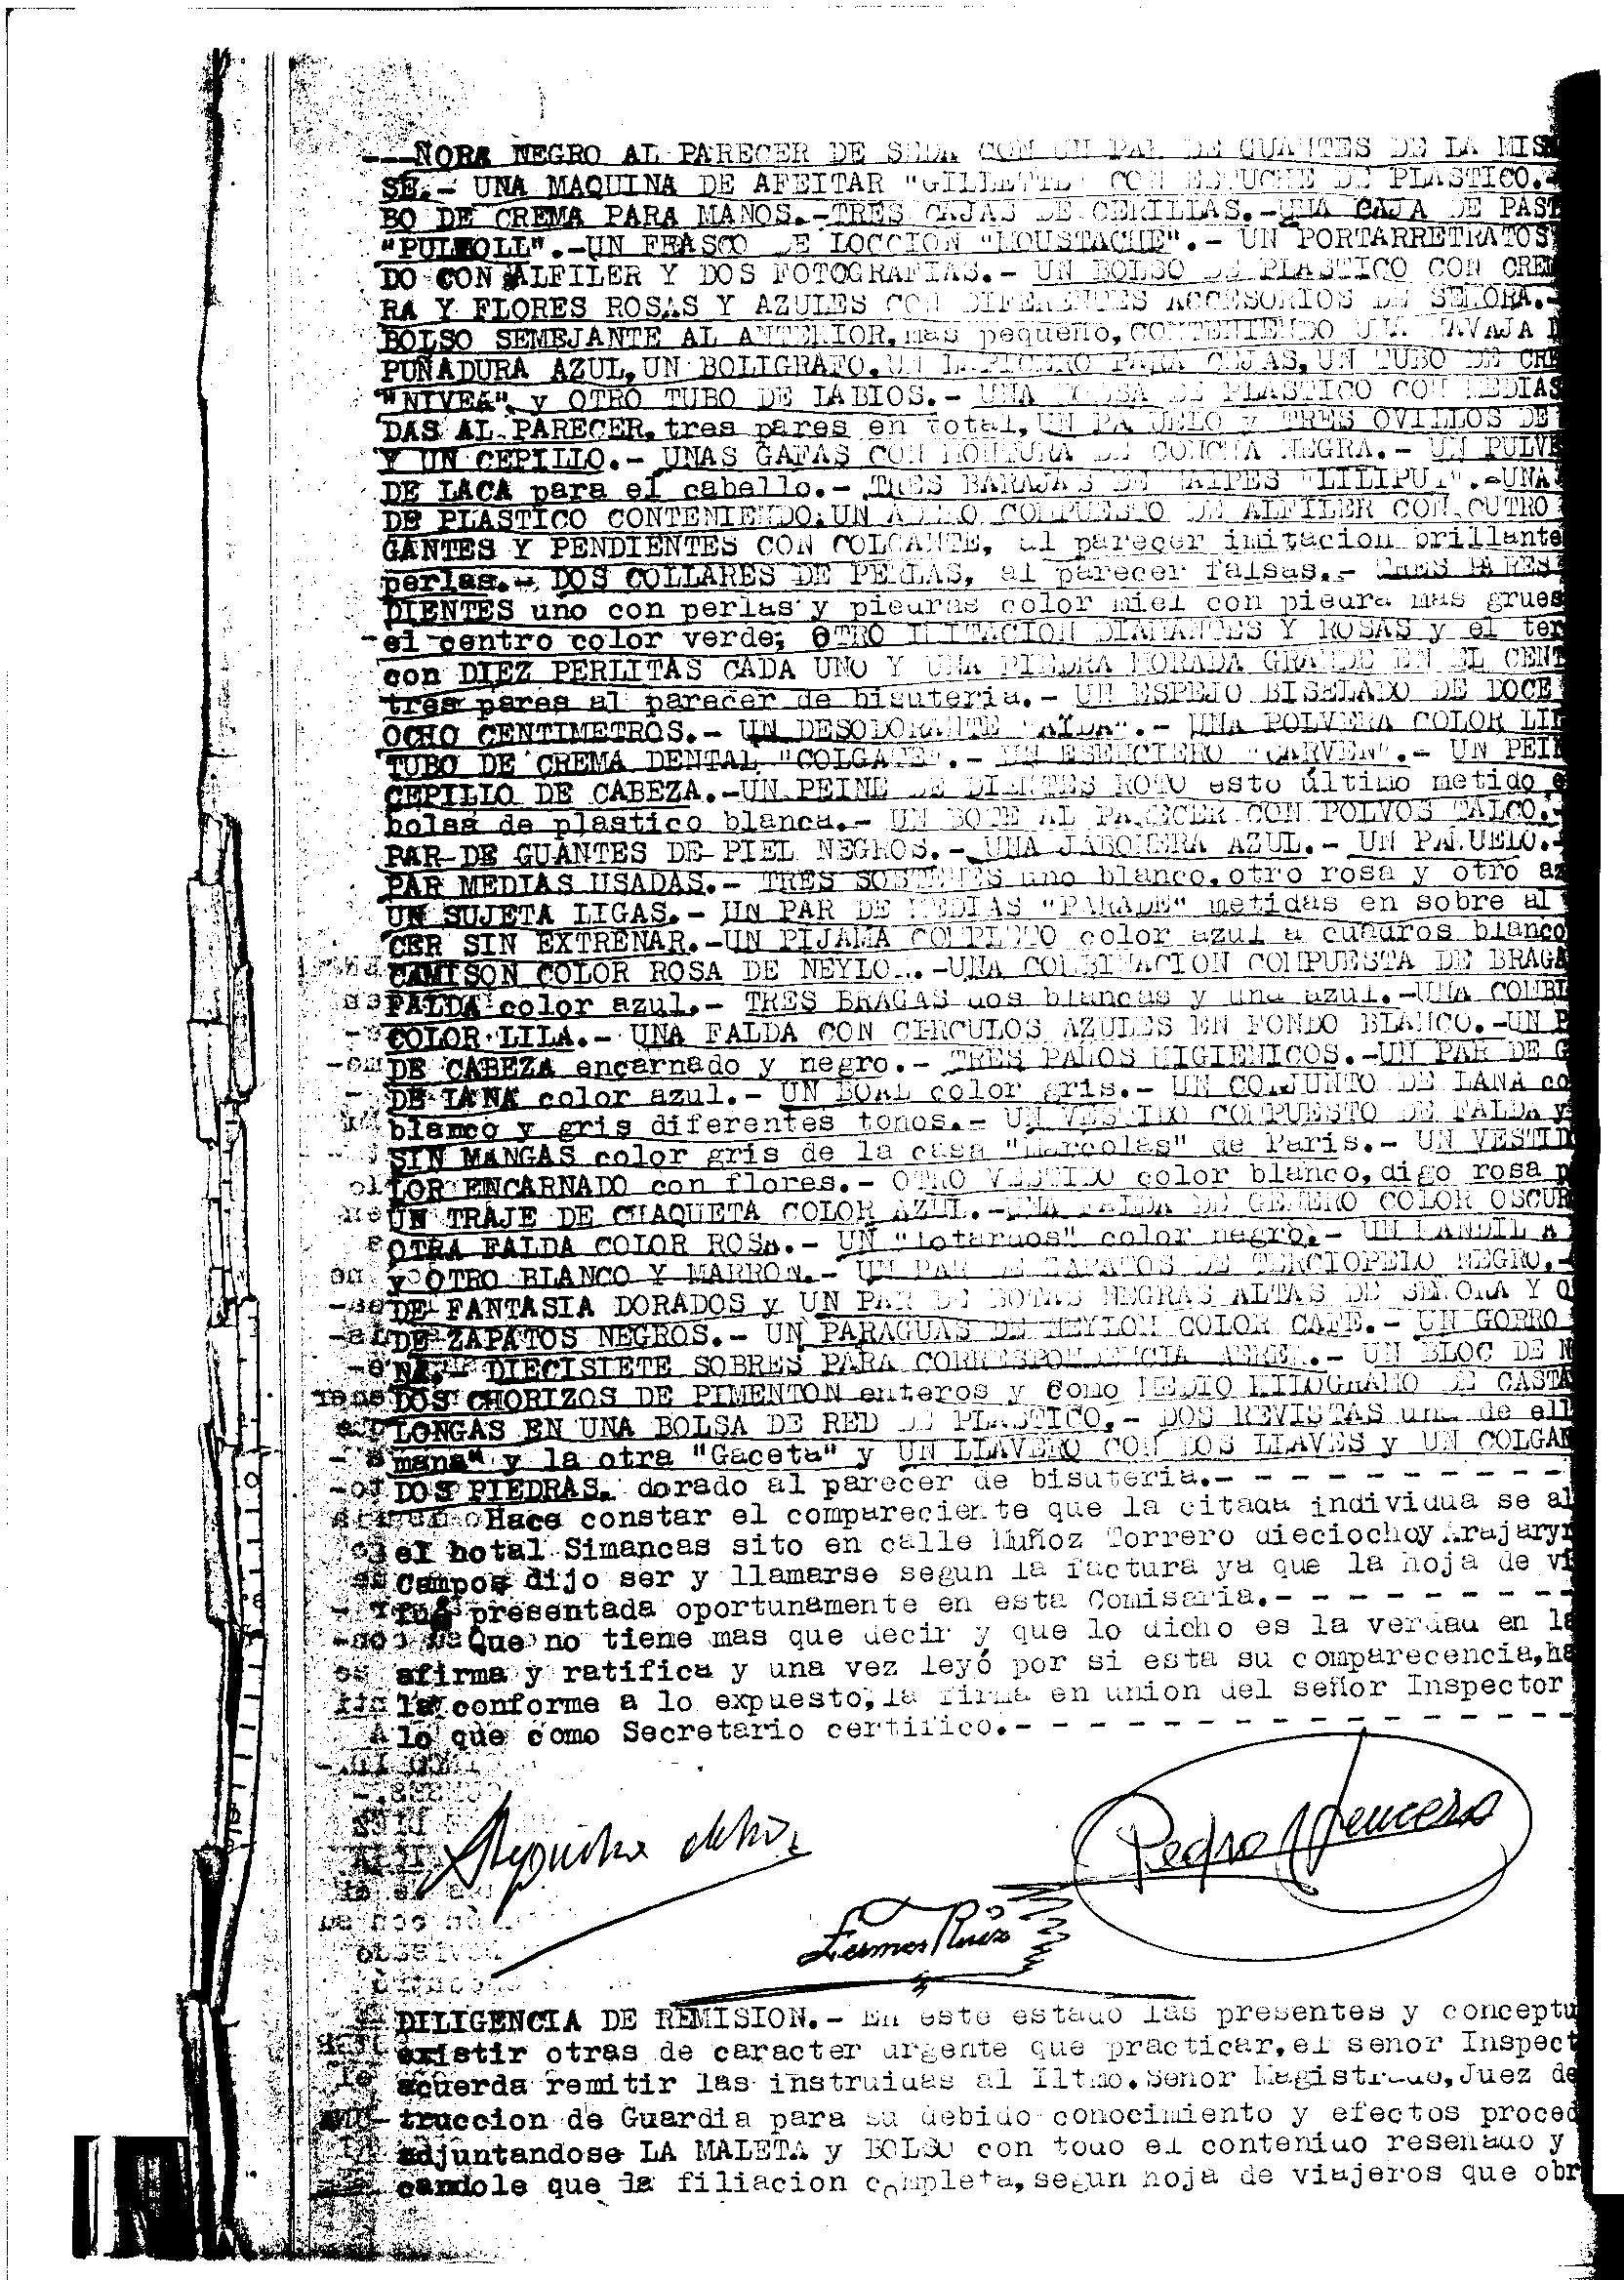 ---ÑORA NEGRO AL PARECER DE SEDA CON UN PAR DE GUANTES DE LA MIS
SE.- UNA MAQUINA DE AFEITAR "GILLETTE" CON ESTUCHE DE PLASTICO.-
BO DE CREMA PARA MANOS.-TRES CAJAS DE CERILLAS.-UNA CAJA DE PAST
"PULMOLL".-UN FRASCO DE LOCCION "MOUSTACHE".- UN PORTARRETRATOS
DO CON ALFILER Y DOS FOTOGRAFIAS.- UN BOLSO DE PLASTICO CON CREM
RA Y FLORES ROSAS Y AZULES CON DIFERENTES ACCESORIOS DE SEÑORA.-
BOLSO SEMEJANTE AL ANTERIOR, mas pequeño, CONTENIENDO UNA NAVAJA
PUÑADURA AZUL, UN BOLIGRAFO, UN LAPICERO PARA CEJAS, UN TUBO DE CRE
"NIVEA", y OTRO TUBO DE LABIOS.- UNA BOLSA DE PLASTICO CON MEDIAS
DAS AL PARECER, tres pares en total, UN PAÑUELO y TRES OVILLOS DE
Y UN CEPILLO.- UNAS GAFAS CON MONTURA DE CONCHA NEGRA.- UN PULVE
DE LACA para el cabello.- TRES BARAJAS DE NAIPES "LILIPUT".-UNA
DE PLASTICO CONTENIENDO: UN ADERO COMPUESTO DE ALFILER CON CUTRO
GANTES Y PENDIENTES CON COLGANTE, al parecer imitacion brillante
perlas.- DOS COLLARES DE PERLAS, al parecer falsas.- TRES PARES
DIENTES uno con perlas y piedras color miel con piedra mas grues
-el centro color verde; OTRO IMITACION DIAMANTES Y ROSAS y el ter
con DIEZ PERLITAS CADA UNO Y UNA PIEDRA MORADA GRANDE EN EL CENT
tres pares al parecer de bisuteria.- UN ESPEJO BISELADO DE DOCE
OCHO CENTIMETROS.- UN DESODORANTE "AIDA".- UNA POLVERA COLOR LIL
TUBO DE CREMA DENTAL "COLGATE".- UN ESENCIERO "CARVEN".- UN PEIN
CEPILLO DE CABEZA.-UN PEINE DE DIENTES ROTO esto último metido e
bolsa de plastico blanca.- UN BOTE AL PARECER CON POLVOS TALCO.-
PAR DE GUANTES DE PIEL NEGROS.- UNA JABONERA AZUL.- UN PAÑUELO.-
PAR MEDIAS USADAS.- TRES SOSTENES uno blanco, otro rosa y otro az
UN SUJETA LIGAS.- UN PAR DE MEDIAS "PARADE" metidas en sobre al
CER SIN EXTRENAR.-UN PIJAMA COMPLETO color azul a cuadros blanco
CAMISON COLOR ROSA DE NEYLON.-UNA COMBINACION COMPUESTA DE BRAGA
FALDA color azul.- TRES BRAGAS dos blancas y una azul.-UNA COMBI
COLOR LILA.- UNA FALDA CON CIRCULOS AZULES EN FONDO BLANCO.-UN P
DE CABEZA encarnado y negro.- TRES PAÑOS HIGIENICOS.-UN PAR DE G
DE LANA color azul.- UN color gris.- UN CONJUNTO DE LANA co
blanco y gris diferentes tonos.- UN VESTIDO COMPUESTO DE FALDA y
SIN MANGAS color gris de la casa "Marcolas" de Paris.- UN VESTID
LOR ENCARNADO con flores.- OTRO VESTIDO color blanco, digo rosa p
UN TRAJE DE CHAQUETA COLOR AZUL.-UNA FALDA DE GENERO COLOR OSCUR
OTRA FALDA COLOR ROSA.- UN color negro.- UN MANDIL A
y OTRO BLANCO Y MARRON.- UN PAR DE ZAPATOS DE TERCIOPELO NEGRO.-
DE FANTASIA DORADOS y UN PAR DE BOTAS NEGRAS ALTAS DE SEÑORA Y O
DE ZAPATOS NEGROS.- UN PARAGUAS DE NEYLON COLOR CAFE.- UN GORRO
NA.- DIECISIETE SOBRES PARA CORRESPONDENCIA AEREA.- UN BLOC DE N
DOS CHORIZOS DE PIMENTON enteros y como MEDIO KILOGRAMO DE CASTA
LONGAS EN UNA BOLSA DE RED DE PLASTICO.- DOS REVISTAS una de ell
mana" y la otra "Gaceta" y UN LLAVERO CON DOS LLAVES y UN COLGAN
DOS PIEDRAS, dorado al parecer de bisuteria.- - - - - - - - - -
Hace constar el compareciente que la citada individua se al
el hotal Simancas sito en calle Muñoz Torrero dieciochoy
Campos dijo ser y llamarse segun la factura ya que la hoja de vi
fué presentada oportunamente en esta Comisaria.- - - - - - - -
Que no tiene mas que decir y que lo dicho es la verdad en la
afirma y ratifica y una vez leyó por si esta su comparecencia, ha
la conforme a lo expuesto, la firma en union del señor Inspector
lo que como Secretario certifico.- - - - - - - - - - - - - - -
Pedro
Ruiz
DILIGENCIA DE REMISION.- En este estado las presentes y conceptu
existir otras de caracter urgente que practicar, el señor Inspect
acuerda remitir las instruidas al Iltmo. Señor Magistrado, Juez de
truccion de Guardia para su debido conocimiento y efectos proced
adjuntandose LA MALETA y BOLSO con todo el contenido reseñado y
candole que la filiacion completa, segun hoja de viajeros que obr